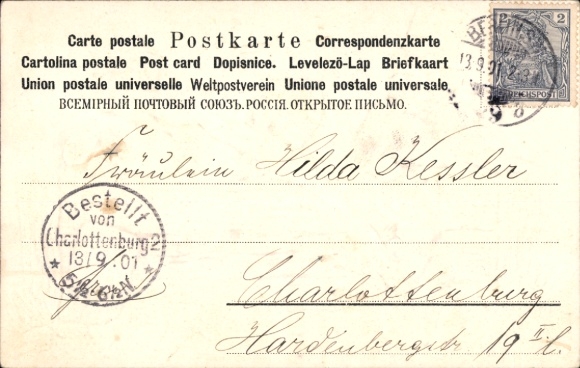 Carte postale Postkarte Correspondenzkarte
Cartolina postale Post card Dopisnice. Levelező-Lap Briefkaart
Union postale universelle Weltpostverein Unione postale universale
ВСЕМІРНЫЙ ПОЧТОВЫЙ СОЮЗЪ. РОССІЯ. ОТКРЫТОЕ ПИСЬМО.
2 2
REICHSPOST
BERLIN
13.9.01
Fräulein Hilda Kessler
Bestellt
von
Charlottenburg 2
13/9.01
5½-6½N
Charlottenburg
Hardenbergstr 19 II l.